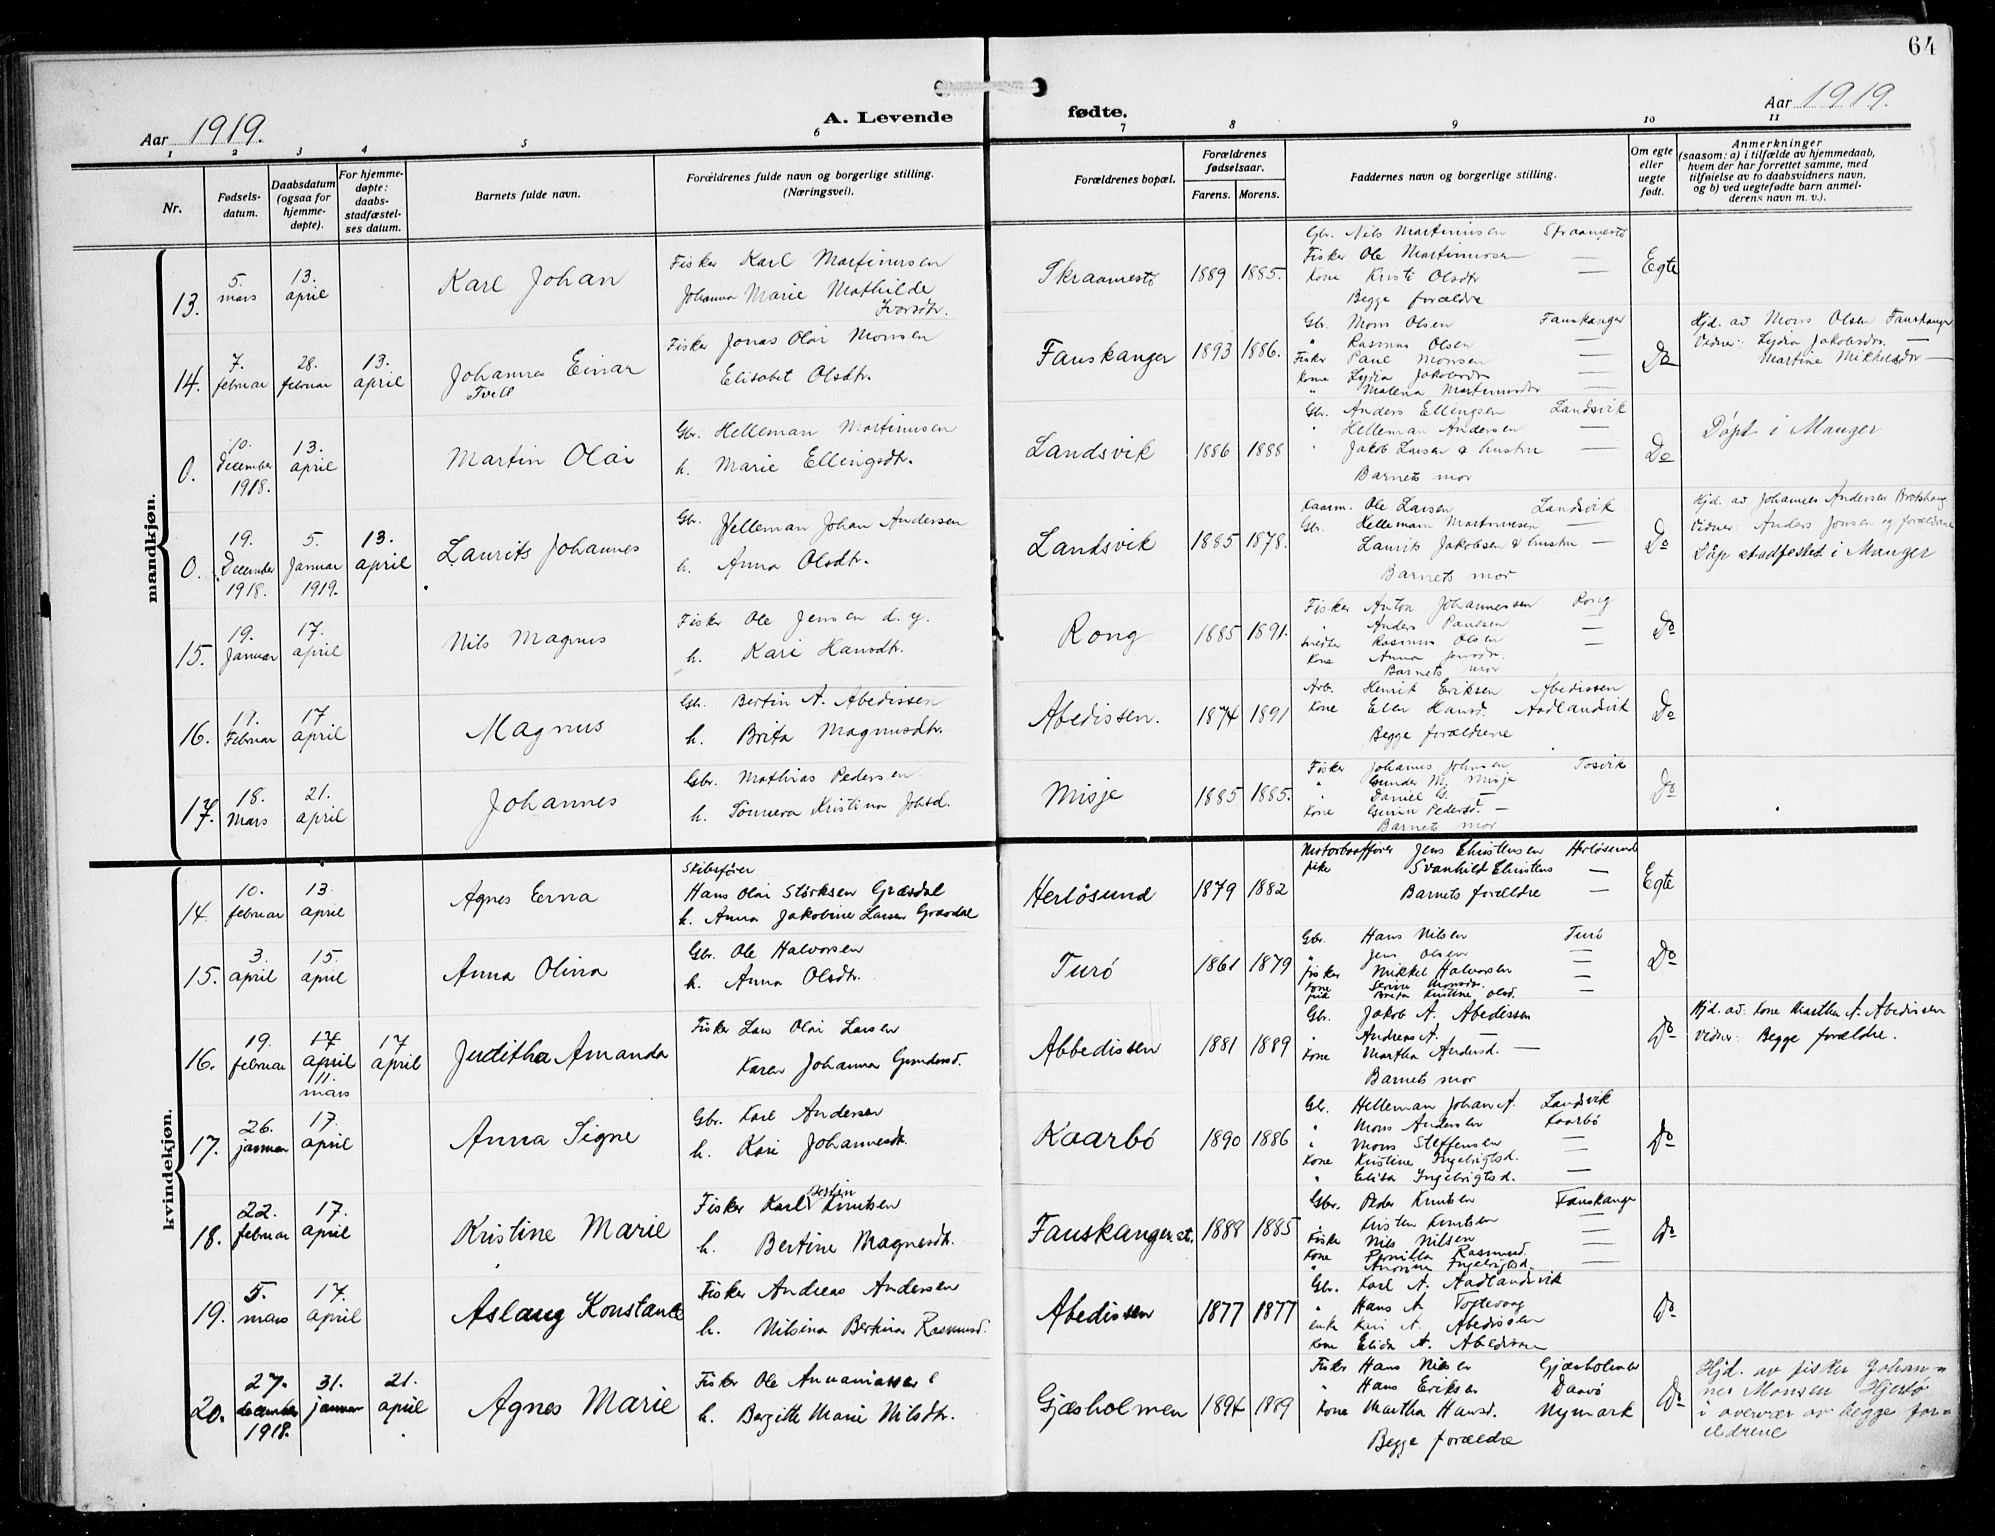 64
Aar 1919.
A. Levende fødte.
Aar 1919.
1 2 3 4 5 6 7 8 9 10 11
Nr.
Fødsels-
datum.
Daabsdatum
(ogsaa for
hjemme-
døpte).
For hjemme-
døpte:
daabs-
stadfæstel-
ses datum.
Barnets fulde navn.
Forældrenes fulde navn og borgerlige stilling.
(Næringsvei).
Forældrenes bopæl.
Forældrenes
fødselsaar.
Farens. Morens.
Faddernes navn og borgerlige stilling.
Om egte
eller
uegte
født.
Anmerkninger
(saasom: a) i tilfælde av hjemmedaab,
hvem der har forrettet samme, med
tilføielse av to daabsvidners navn,
og b) ved uegtefødte barn anmel-
derens navn m. v.).
mandkjøn.
13.
5.
mars
13.
april
Karl Johan
Fisker Karl Martinusen
Johanna Marie Mathilde
Ivarsdtr.
Skraamestø
1889 1885.
Gbr. Nils Martinusen Skraamestø
Fisker Ole Martinusen —
Kone Kristi Olsdtr —
Begge forældre
Egte
14.
7.
februar
28.
februar
13.
april
Johannes Einar
Tvill
Fisker Jonas Olai Monsen
Elisabet Olsdtr.
Fauskanger
1893 1886.
Gbr. Mons Olsen Fauskanger
" Rasmus Olsen —
Fisker Paul Monsen —
Kone Lydia Jakobsdtr —
" Malena Martinusdtr —
Do
Hjd. av Mons Olsen Fauskanger
Vidner: Lydia Jakobsdtr. —
Martine Mikkelsdtr —
0.
10.
December
1918.
13.
april
Martin Olai
Gbr. Helleman Martinusen
h. Marie Ellingsdtr.
Landsvik
1886 1888
Gbr. Anders Ellingsen Landsvik
" Helleman Andersen —
" Jakob Larsen & hustru —
Barnets mor
Do
Døpt i Manger
0.
19.
December
1918.
5.
Januar
1919.
13.
april
Laurits Johannes
Gbr. Helleman Johan Andersen
h. Anna Olsdtr.
Landsvik
1885 1878.
Kaarm. Ole Larsen Landsvik
Gbr. Hellemann Martinusen —
Laurits Jakobsen & hustru —
Barnets mor
Do
Hjd. av Johannes Andersen
Vidner: Anders Jonsen og forældrene
Dåp stadfestet i Manger
15.
19.
Januar
17.
april
Nils Magnus
Fisker Ole Jensen d. y.
h. Kari Hansdtr.
Rong
1885 1891.
Fisker Anton Johannessen Rong
" Anders Paulsen —
Rasmus Olsen —
Kone Anna Jensdtr.
Barnets mor
Do
16.
11.
Februar
17
april
Magnus
Gbr. Bertin A. Abedissen
h. Brita Magnusdtr.
Abedissen.
1874 1891
Arb. Henrik Eriksen Abedissen
Kone Ellen Hansd. Aadlandsvik
Begge forældrene
Do
17.
18.
Mars
21.
april
Johannes
Gbr. Mathias Pedersen
h. Sønneva Kristina Johsd.
Misje
1885 1885.
Fisker Johannes Johnsen Tosvik
" Gunder M. Misje
" Daniel G. —
Kone Guri Pedersd. —
Barnets mor
Do
kvindekjøn.
14.
10.
februar
13
april
Agnes Erna
Skibsfører
Hans Olai Størksen Græsdal
h. Anna Jakobine Larsen Græsdal
Herløsund
1879 1882
Motorbaatfører Jens Christensen Herløsund
pike Svanhild Christens —
Barnets forældre —
Egte
15.
3.
april
15.
april
Anna Olina
Gbr. Ole Halvorsen
h. Anna Olsdtr.
Turø
1861 1879
Gbr. Hans Nilsen Turø
" Jens Olsen —
Fisker Mikkel Halvorsen —
Kone Serine Monsdtr. —
pik Brita Kristine Olsd. —
Do
16.
19.
februar
17
april
11.
mars
17
april
Juditha Amanda
Fisker Lars Olai Larsen
Karen Johanna Gundersd.
Abbedissen
1881 1889
Gbr. Jakob A. Abedissen
" Andreas A. —
Kone Martha Andersd. —
Barnets mor
Do
Hjd. av: Kone Martha A. Abedissen
Vidner: Begge forældre.
17.
26.
januar
17.
april
Anna Signe
Gbr. Karl Andersen
h. Kari Johannesdtr.
Kaarbø
1890 1886
Gbr. Helleman Johan A. Landsvik
" Mons Andersen Kaarbø
" Mons Steffensen —
Kone Kristine Ingebrigtsd. —
" Elisa Ingebrigtsd. —
Do
18.
22.
februar
17.
april
Kristine Marie
Fisker Karl Bertin Knutsen
h. Bertine Magnesdtr.
Fauskanger st.
1888 1885
Gbr. Peder Knutsen Fauskanger
" Kristen Knutsen —
Fisker Nils Nilsen —
Kone Pernilla Rasmusd. —
" Anorine Ingebrigtsd. —
Do
19.
5.
mars
17.
april
Aslaug Konstance
Fisker Andreas Andersen
h. Nilsina Bertina Rasmusd.
Abedissen
1877 1877
Gbr. Karl A. Aadlandsvik
" Hans A. Toftevaag
enke Kari A. Abedissen
Kone Elida A. Abedissen
Do
20.
27.
december
1918.
31.
januar
21.
april
Agnes Marie
Fisker Ole Annaniassen
h. Bergitte Marie Nilsdtr.
Gjæsholmen
1894 1889
Fisker Hans Nilsen Gjæsholmen
" Hans Eriksen Daavø
Kone Martha Hansd. Nymark
Begge forældre
Do
Hjd. av fisker Johan-
nes Monsen Hjertø
i overvær av begge for-
ældrene